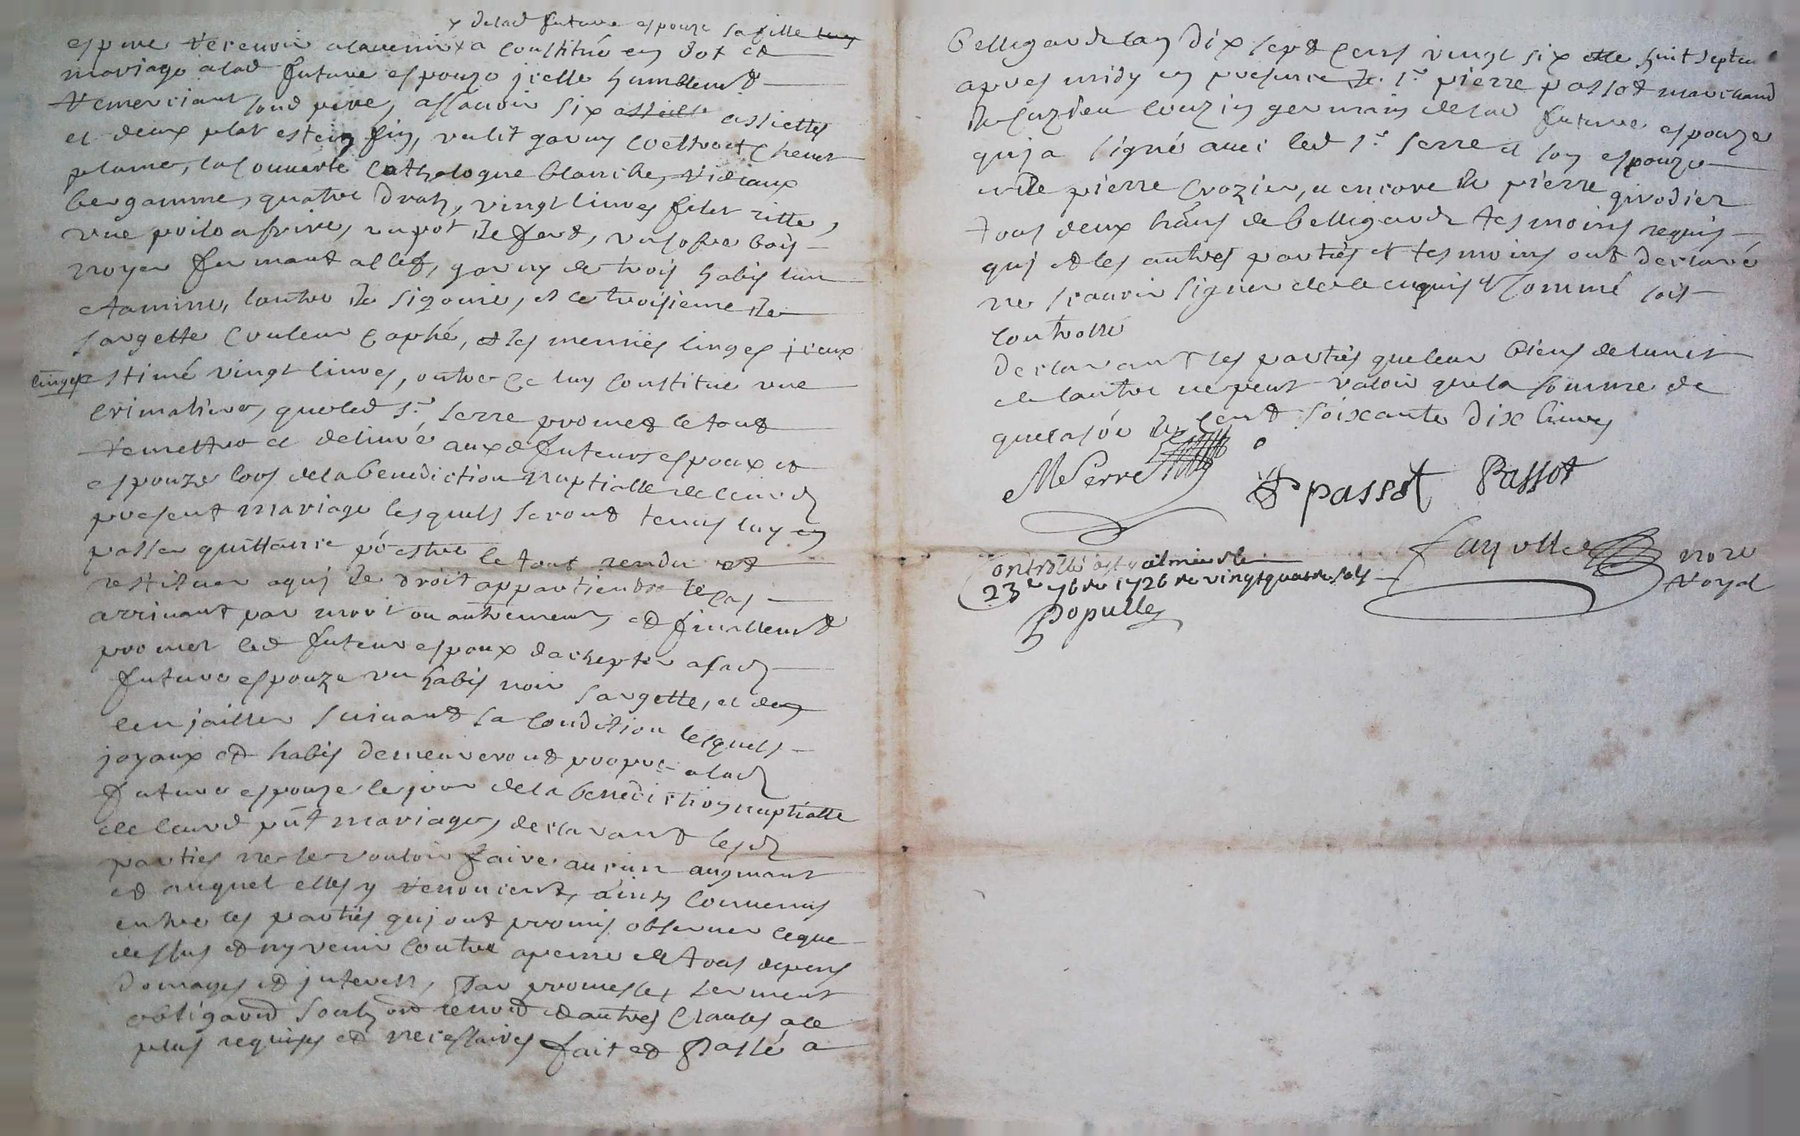 x de lad future espouze sa fille
espere recevoir a la venir x a constitué en dot et
mariage a lad future espouze icelle humblemt
remerciant sond pere, assavoir six assiettes
et deux plat estein fin, un lit garny coettre et chevet
plume, la couverte cathalogne blanche, rideaux
bergamme, quatre draps, vingt livres filet ritte,
une poile a frire, un pot de fert, un cofre bois
noyer fermant a clef, garny de trois habis l'un
etamine, l'autre de sigovie, et le troisieme de
sargette couleur caphé, et les menües linges iceux
linges estimé vingt livres, outre ce luy constitue une
cremaliere, que led sr. serre promet le tout
remettre et delivré aux d futurs espoux et
espouze lors de la benediction nuptialle de leurd
present mariage lesquels seront tenus luy en
passer quittance pr estre le tout rendu et
restituer a qui de droit appartiendra le cas
arrivant par mort ou autrement, et finallemt
promet led futur espoux d'achepter a sad
future espouze un habis noir sargette, et des
enjailler suivant sa condition lesquels
joyaux et habis demeureront propre a lad
future espouze le jour de la benediction nuptialle
de leurd pnt mariage, declarant lesd
parties ne se vouloir faire aucun augmant
et auquel elles y renoncent, ainsy convenus
entre les parties qui ont promis observer ce que
dessus et ny venir contre a peine de tous depens
domages et interets, par promesses serment
obligaon soubz on renon et autres clauses a ce
plus requises et necessaires fait et passé a
Bellegarde lan dix sept cens vingt six et le huit septem
apres midy en presence de sr. pierre passot marchand
de cuzieu couzin germain de lad future espouze
qui a signé avec led sr. serre et son espouze
et de pierre crozier, et encore de pierre girodier
tous deux habns de bellegarde tesmoins requis
qui et les autres parties et tesmoins ont declaré
ne scavoir signer de ce enquis et sommé soit
controllé
declarant les parties que leur biens de l'un et
de lautre ne peut valoir que la somme de
que la soe de cent soixante dix livres
M Serre
passot Passot
Fayolle nore
royal
Controllé a st galmier le
23e 7bre 1726 re vingt quatre sols
Populle